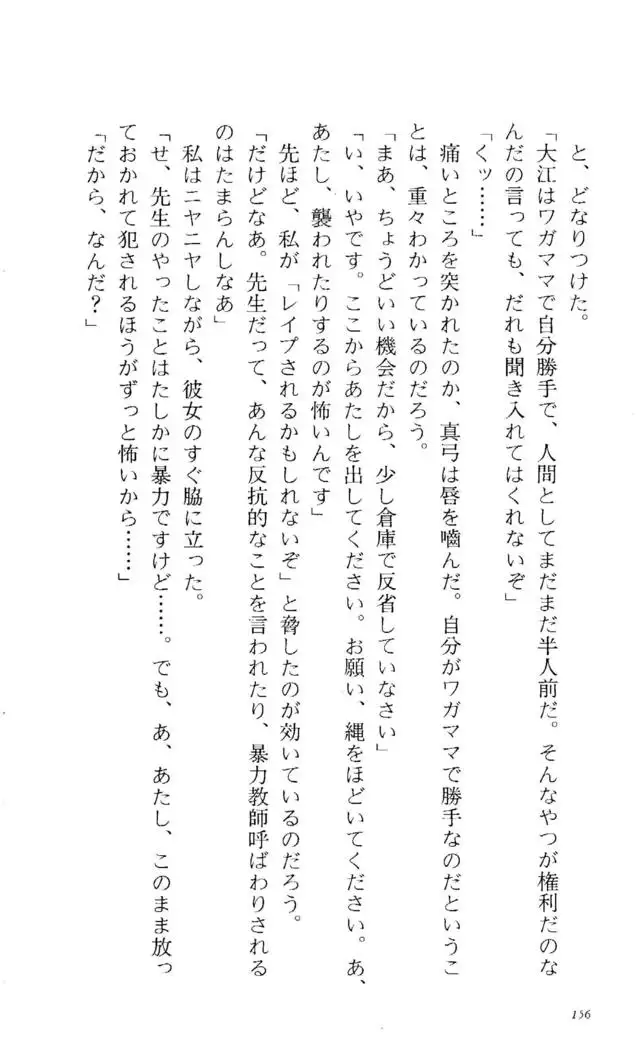 と、どなりつけた。
「大江はワガママで自分勝手で、人間としてまだまだ半人前だ。そんなやつが権利だのな
んだの言っても、だれも聞き入れてはくれないぞ」
「くッ……」
痛いところを突かれたのか、真弓は唇を嚙んだ。自分がワガママで勝手なのだというこ
とは、重々わかっているのだろう。
「まあ、ちょうどいい機会だから、少し倉庫で反省していなさい」
「い、いやです。ここからあたしを出してください。お願い、縄をほどいてください。あ、
あたし、襲われたりするのが怖いんです」
先ほど、私が「レイプされるかもしれないぞ」と脅したのが効いているのだろう。
「だけどなあ。先生だって、あんな反抗的なことを言われたり、暴力教師呼ばわりされる
のはたまらんしなあ」
私はニヤニヤしながら、彼女のすぐ脇に立った。
「せ、先生のやったことはたしかに暴力ですけど……。でも、あ、あたし、このまま放っ
ておかれて犯されるほうがずっと怖いから……」
「だから、なんだ？」
156